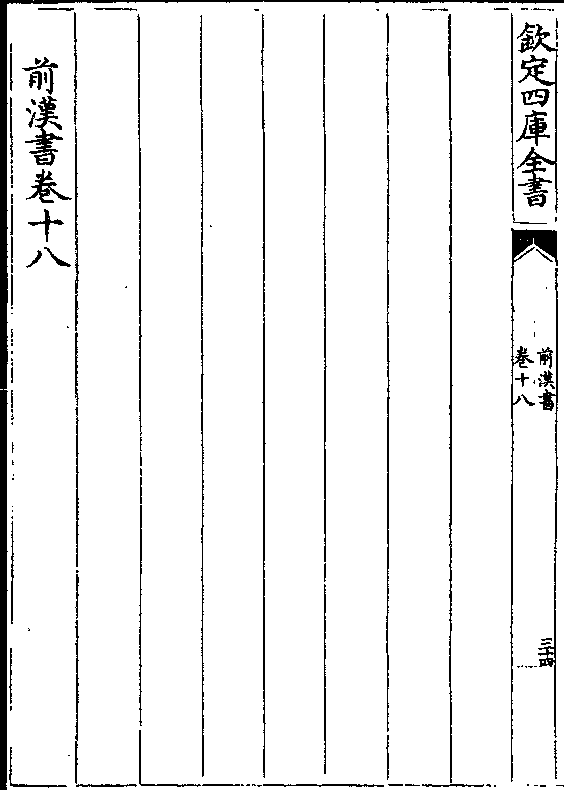 欽定四庫全書
前漢書
卷十八
三十四
前漢書卷十八